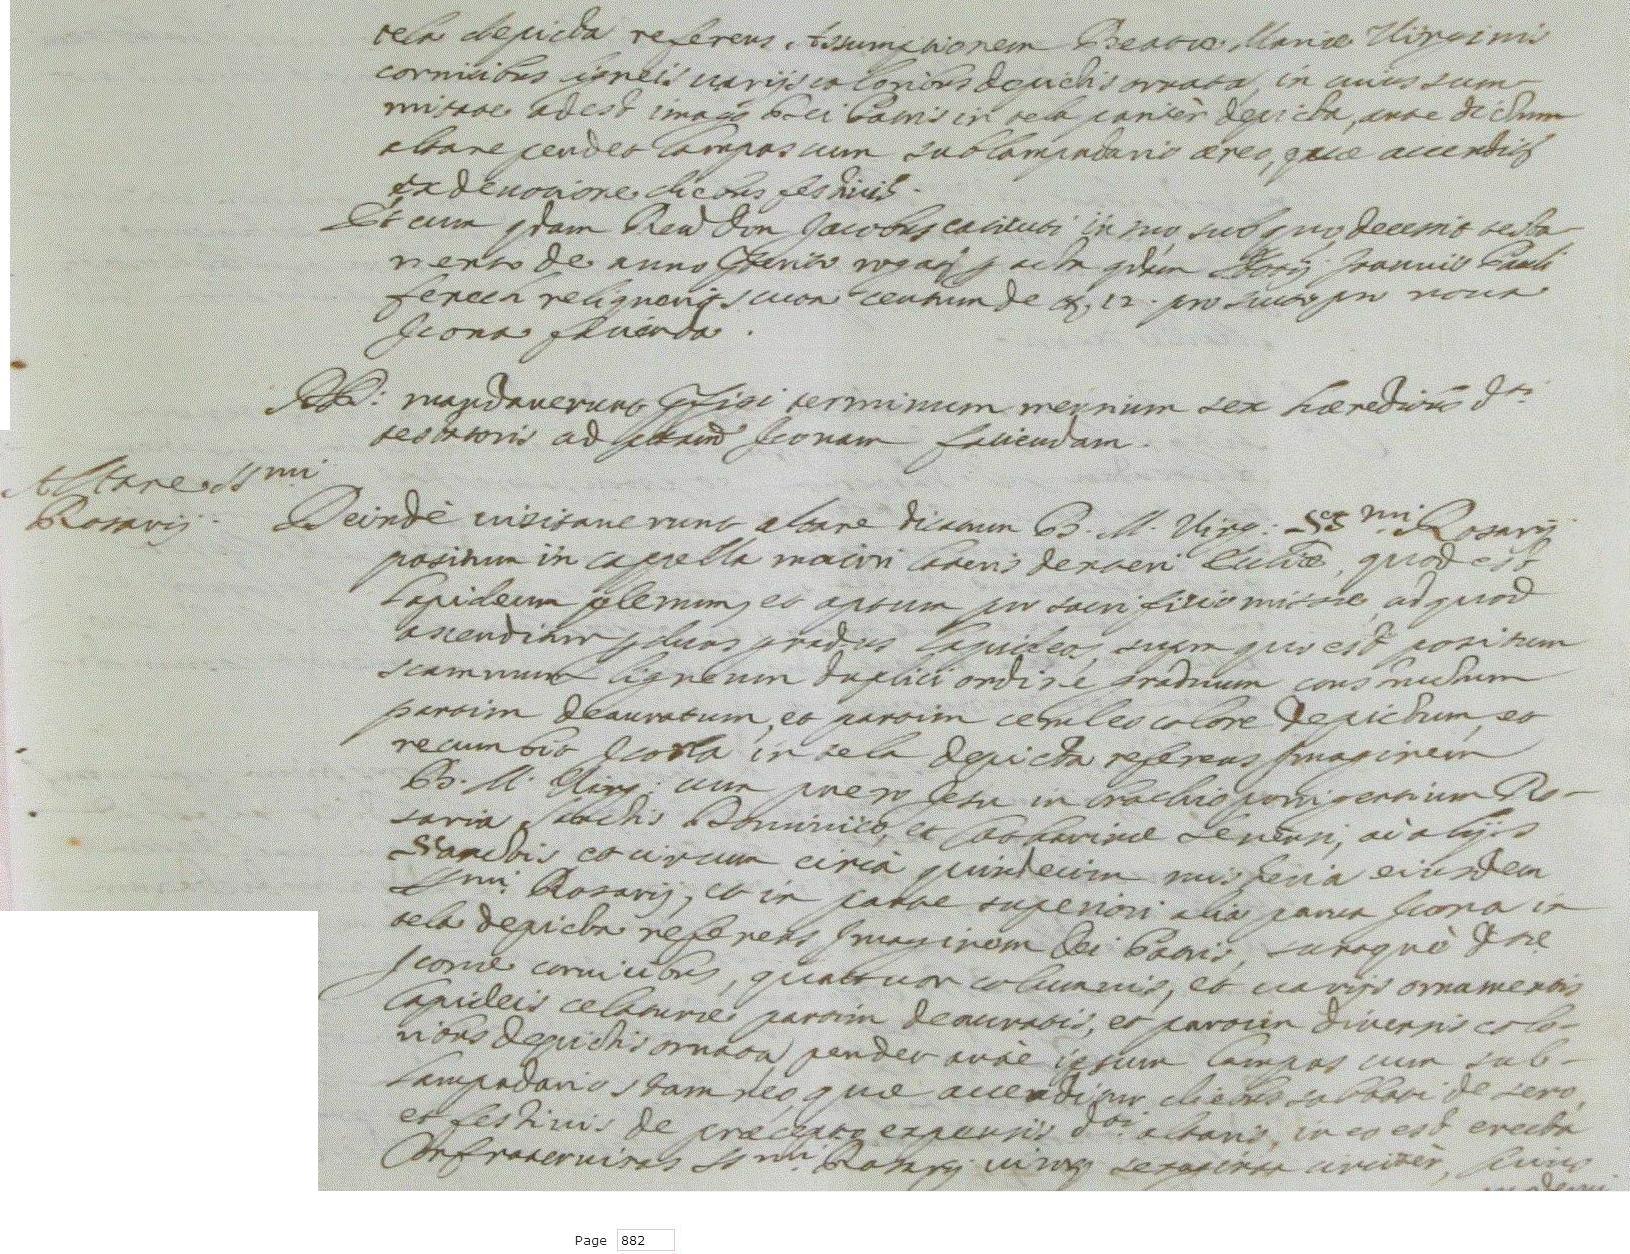 tela depicta referens Assumptionem Beatæ Mariæ Virginis
cornicibus ligneis varijs coloribus depictis ornata, in cuius sum-
mitate adest imago Dei Patris in tela pariter depicta, ante dictum
altare pendet lampas cum sublampadario æreo, quæ accenditur
ex devotione diebus festivis.
Et cum qdam Revd Don Jacobus in suo, sub quo decessit testa-
mento de anno rogat p acta qdam Notarij Joannis Pauli
reliquerit scuta centum de 12. pro
Icona facienda.
RR: mandaverunt præfigi terminum mensium sex hæredibus dti
testatoris ad Iconam faciendam.
Altare SSmi
Rosarij.
Deindè visitaverunt altare dicatum B. M. Virg: SSmi Rosarij
positum in cappella maiori lateris dexteri Ecclîæ, quod est
lapideum plenum, et aptum pro sacrificio missæ, ad quod
ascenditur p duos gradus lapideos, supra quo est positum
scamnum ligneum duplici ordine graduum constructum
partim deauratum, et partim ceruleo colore depictum, et
recumbit Icona in tela depicta referens Imaginem
B. M. Virg: cum puero Jesu in brachio porrigentium Ro-
saria Sanctis Dominico, et Catharinæ Senensi, ac alijs
Sanctis et circum circa quindecim misteria eiusdem
SSmi Rosarij, et in parte superiori alia parva Icona in
tela depicta referens Imaginem Dei Patris, utraque dictæ
Iconæ cornicibus, quattuor columnis, et varijs ornamentis
lapideis celaturæ partim deauratis, et partim diversis colo-
ribus depictis ornata, pendet ante ipsum lampas cum sub-
lampadario stamneo, quæ accenditur diebus sabbati de sero,
et festivis de præcepto expensis dti altaris, in eo est erecta
Confraternitas SSmi Rosarij sexaginta circiter,